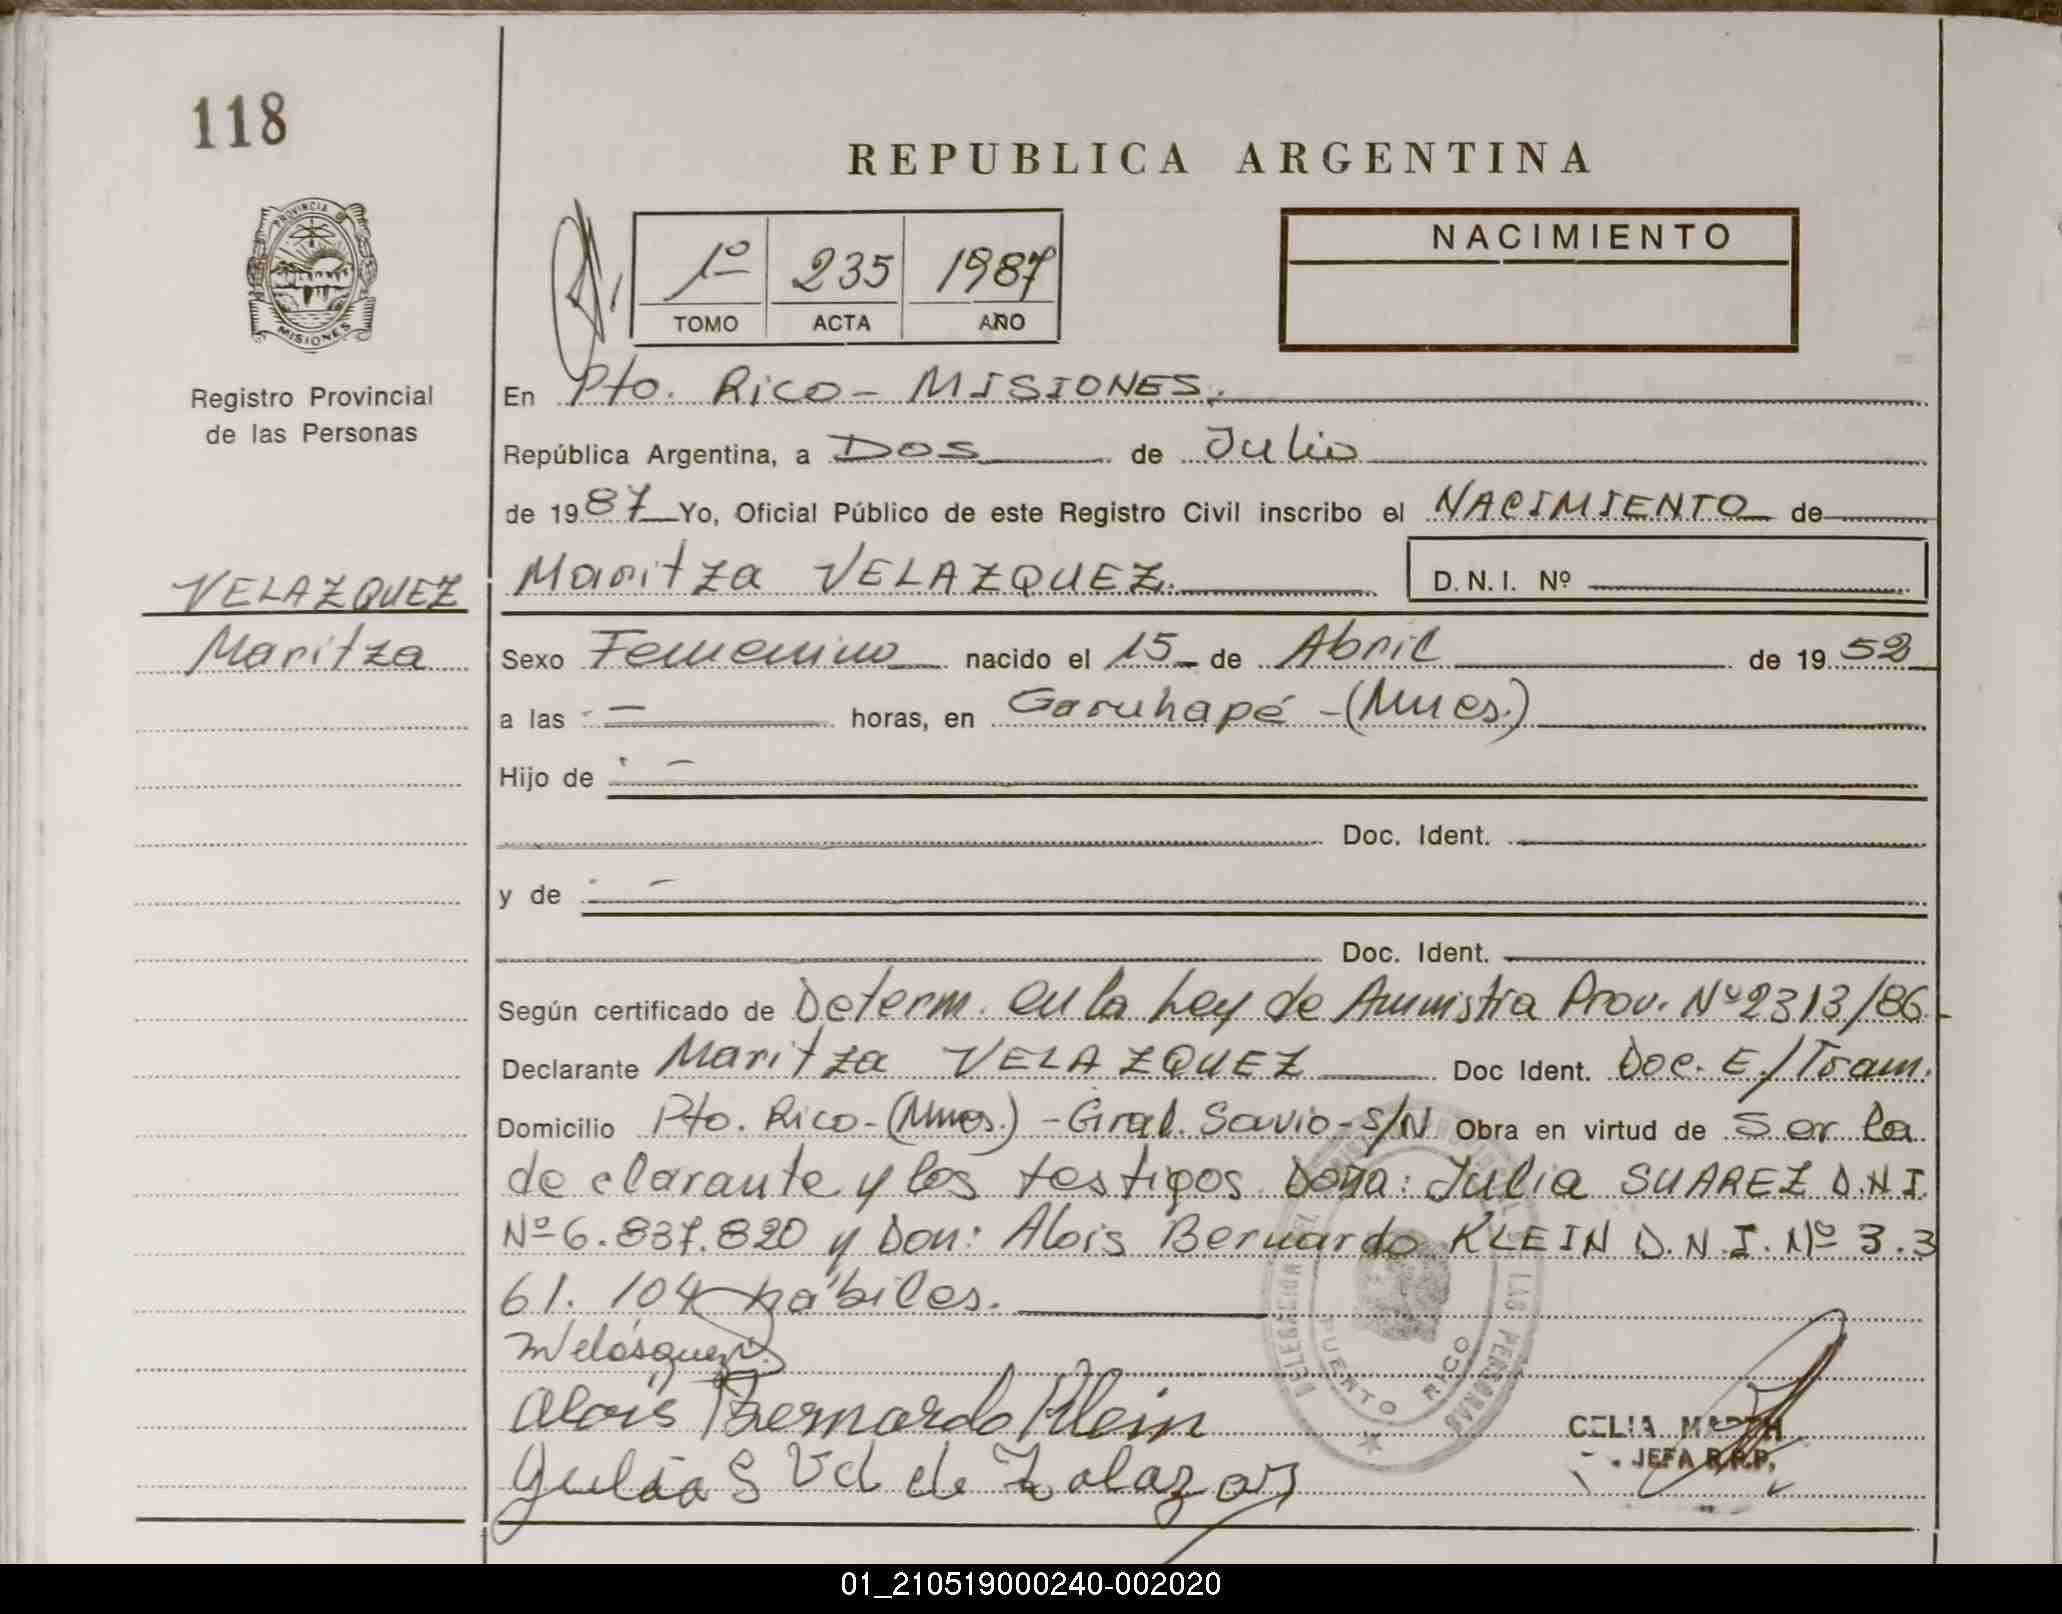 118
REPUBLICA ARGENTINA
PROVINCIA D
MISIONES
1º 235 1987
TOMO ACTA AÑO
NACIMIENTO
Registro Provincial
de las Personas
En Pto. Rico - MISIONES.
República Argentina, a Dos de Julio
de 1987 Yo, Oficial Público de este Registro Civil inscribo el NACIMIENTO de
Maritza VELAZQUEZ. D.N.I. Nº
VELAZQUEZ
Maritza
Sexo Femenino nacido el 15 de Abril de 1952
a las — horas, en Garuhapé - (Mnes.)
Hijo de —
Doc. Ident.
y de —
Doc. Ident.
Según certificado de Determ. en la Ley de Amnistia Prov. Nº 2313/86.
Declarante Maritza VELAZQUEZ Doc Ident. Doc. E./Tram.
Domicilio Pto. Rico - (Mnes.) - Gral. Savio - S/N Obra en virtud de Ser la
declarante y los testigos Doña: Julia SUAREZ D.N.I.
Nº 6.837.820 y Don: Alois Bernardo KLEIN D.N.I. Nº 3.3
61.104 hábiles.
MVelásquez
Alois Bernardo Klein
Julia S Vd de Zalazar
DELEGACION LAS PERSONAS
PUERTO RICO
CELIA
JEFA R.P.P.
01_210519000240-002020